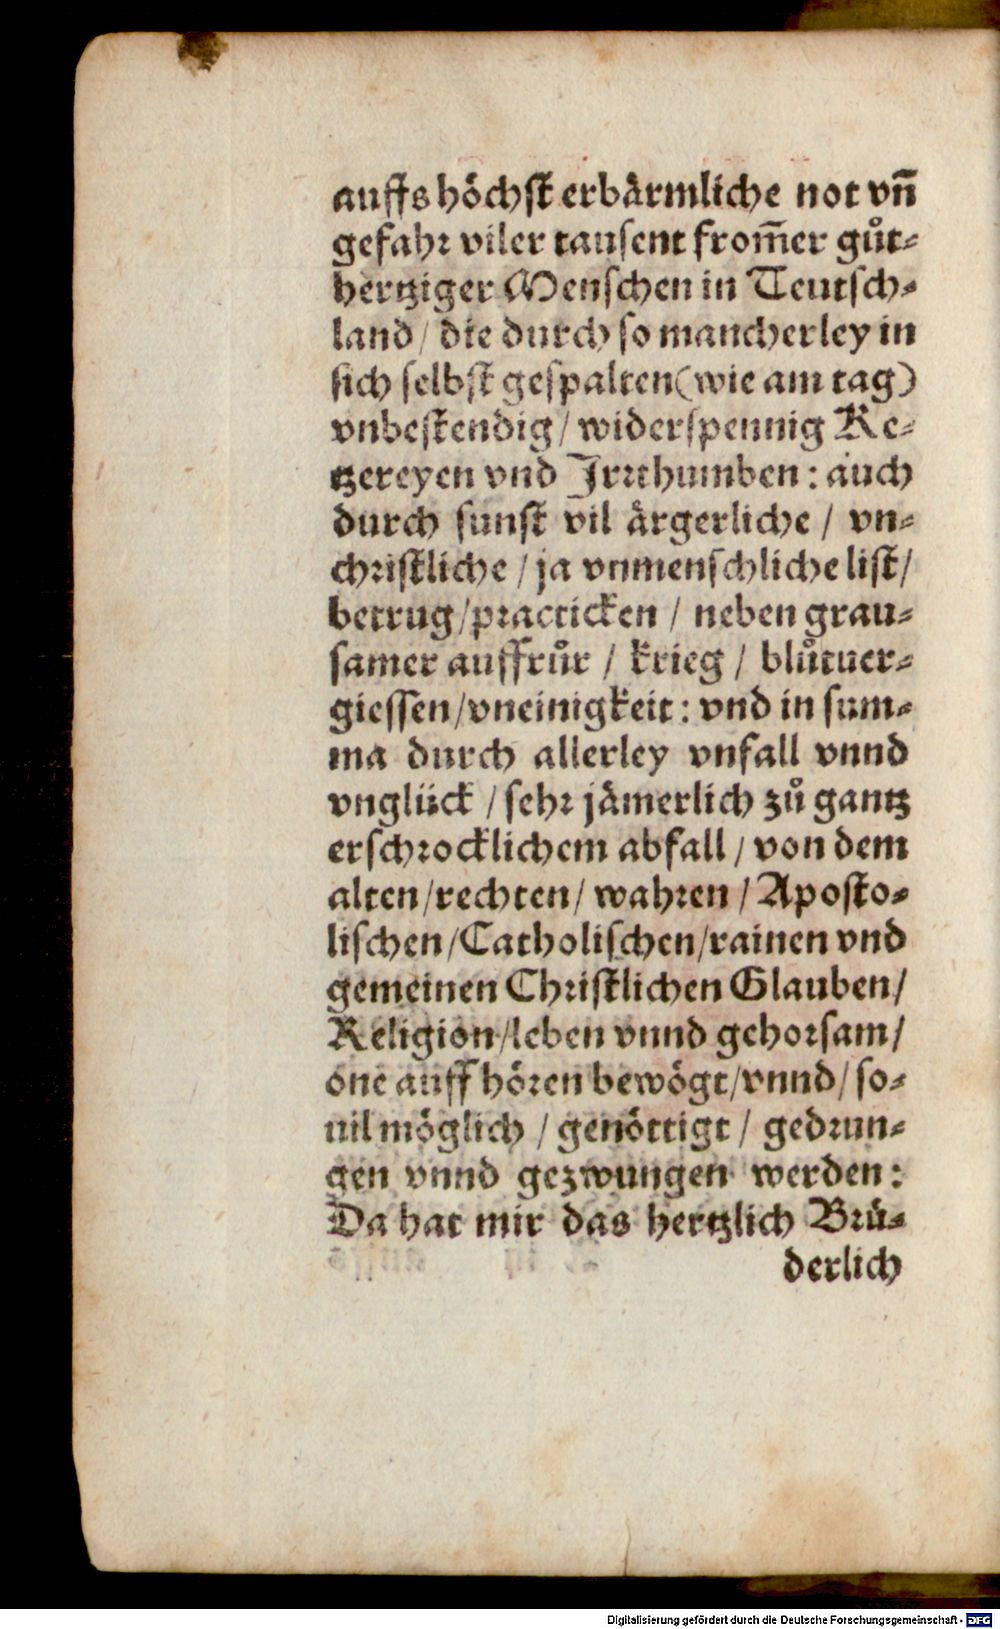 auffs höchst erbärmliche not vn̄
gefahr viler tausent from̄er gůt⸗
hertziger Menschen in Teutsch⸗
land / die durch so mancherley in
sich selbst gespalten (wie am tag)
vnbestendig / widerspennig Ke⸗
tzereyen vnd Jrrthumben: auch
durch sunst vil ärgerliche / vn⸗
christliche / ja vnmenschliche list /
betrug / practicken / neben grau⸗
samer auffrůr / krieg / blůtuer⸗
giessen / vneinigkeit: vnd in sum⸗
ma durch allerley vnfall vnnd
vnglück / sehr jämerlich zů gantz
erschrocklichem abfall / von dem
alten / rechten / wahren / Aposto⸗
lischen / Catholischen / rainen vnd
gemeinen Christlichen Glauben /
Religion / leben vnnd gehorsam /
one auff hören bewögt / vnnd / so⸗
uil möglich / genöttigt / gedrun⸗
gen vnnd gezwungen werden:
Da hat mir das hertzlich Brü⸗
derlich
Digitalisierung gefördert durch die Deutsche Forschungsgemeinschaft - DFG